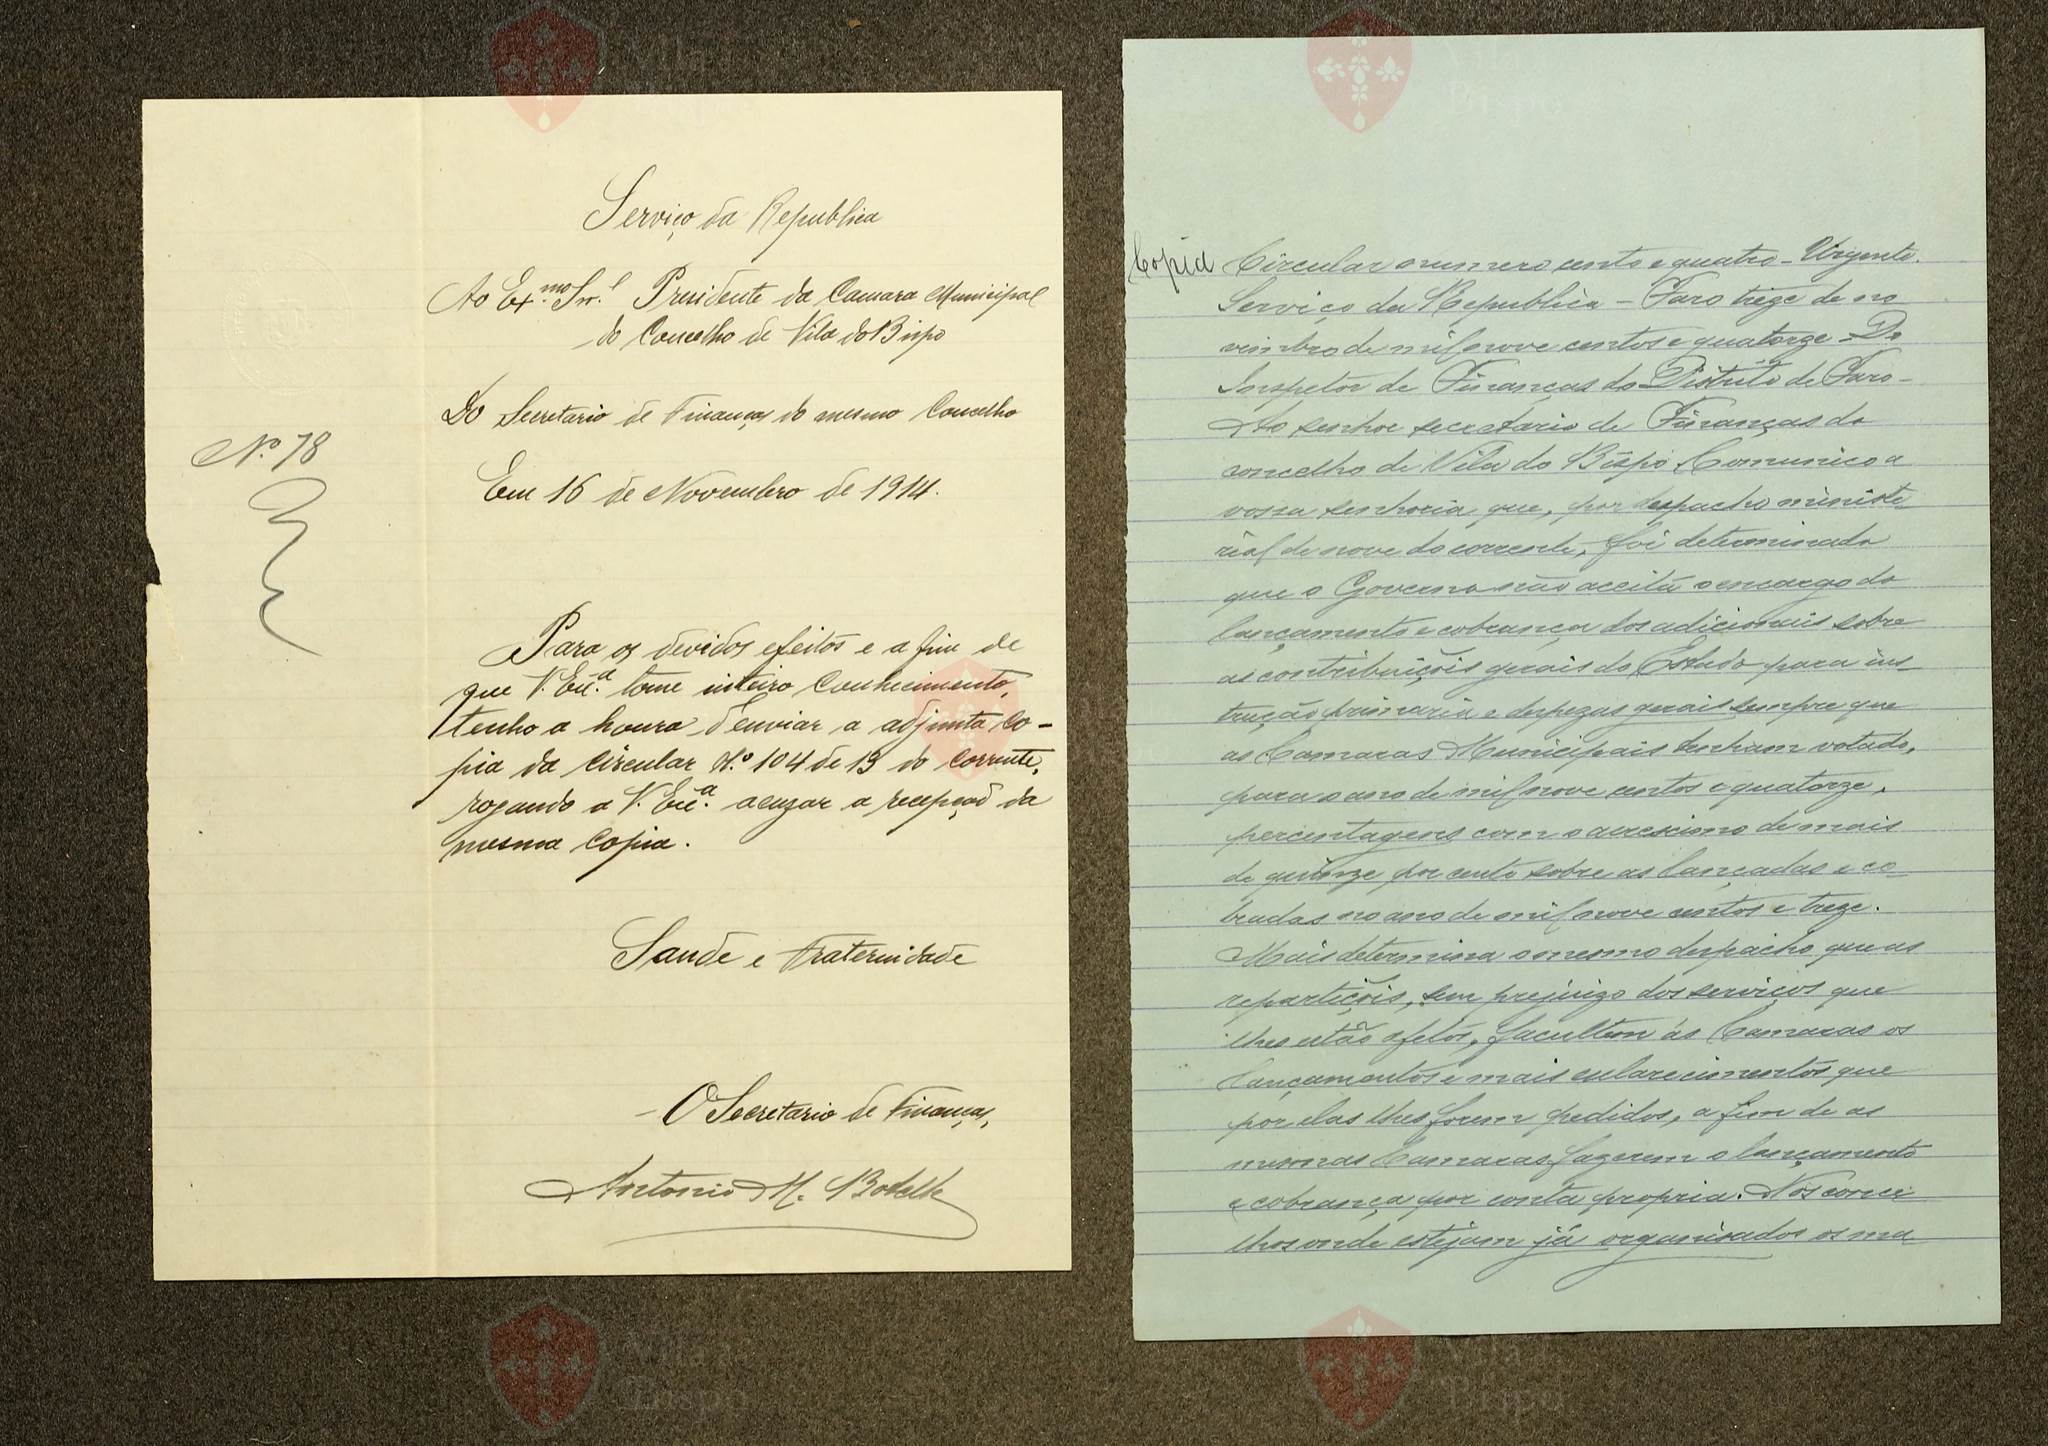 Serviço da Republica
Ao Ex.mo Snr. Presidente da Camara Municipal
do Concelho de Vila do Bispo
Do Secretario de Finanças do mesmo Concelho
Nº 78
Em 16 de Novembro de 1914.
Para os devidos efeitos e a fim de
que V. Exª. tome inteiro conhecimento,
tenho a honra d'enviar a adjunta co-
pia da Circular N.º 104 de 13 do corrente,
rogando a V. Exª. acuzar a recepção da
mesma copia.
Saude e Fraternidade
O Secretario de Finanças,
Antonio M. Botelho
Copia Circular numero cento e quatro - Urgente.
Serviço da Republica - Faro treze de no
vembro de mil nove centos e quatorze - Do
Inspetor de Finanças do Distrito de Faro -
Ao senhor secretario de Finanças do
concelho de Vila do Bispo. Comunico a
vossa senhoria que, por despacho ministe
rial de nove do corrente, foi determinado
que o Governo não aceita o encargo do
lançamento e cobrança dos adicionais sobre
as contribuições gerais do Estado para ins
trução primaria e despezas gerais sempre que
as Camaras Municipais tenham votado,
para o ano de mil nove centos e quatorze,
percentagens com o acrescimo de mais
de quinze por cento sobre as lançadas e co
bradas no ano de mil nove centos e treze.
Mais determina o mesmo despacho que as
repartições, sem prejuizo dos serviços que
lhes estão afetos, facultem ás Camaras os
lançamentos e mais esclarecimentos que
por elas lhes forem pedidos, a fim de as
mesmas Camaras fazerem o lançamento
e cobrança por conta propria. Nos conce
lhos onde estejam já organisados os ma
Vila do
Bispo